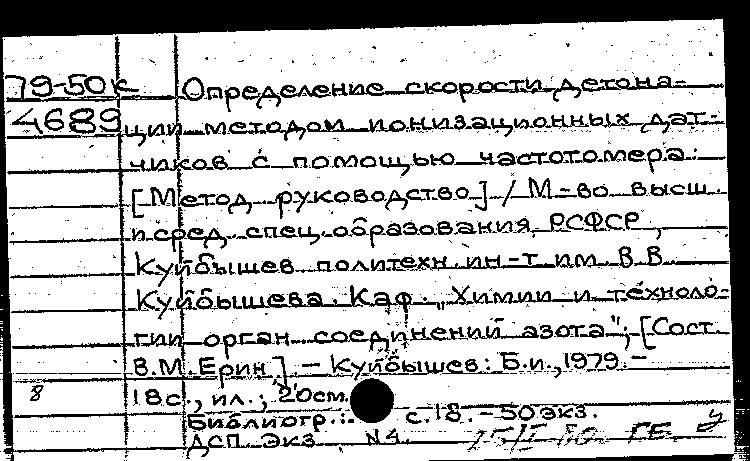 79-50к Определение скорости детона-
4689 ции методом ионизационных дат-
чиков с помощью частотомера:
[Метод. руководство] / М-во высш.
и сред. спец. образования РСФСР,
Куйбышев. политехн. ин-т им. В. В.
Куйбышева. Каф. „Химии и техноло-
гии орган. соединений азота"; [Сост.
В.М. Ерин]. — Куйбышев: Б.и., 1979. —
8 18с., ил.; 20см.
Библиогр.: с. 18. — 50 экз.
ДСП. Экз. N4.